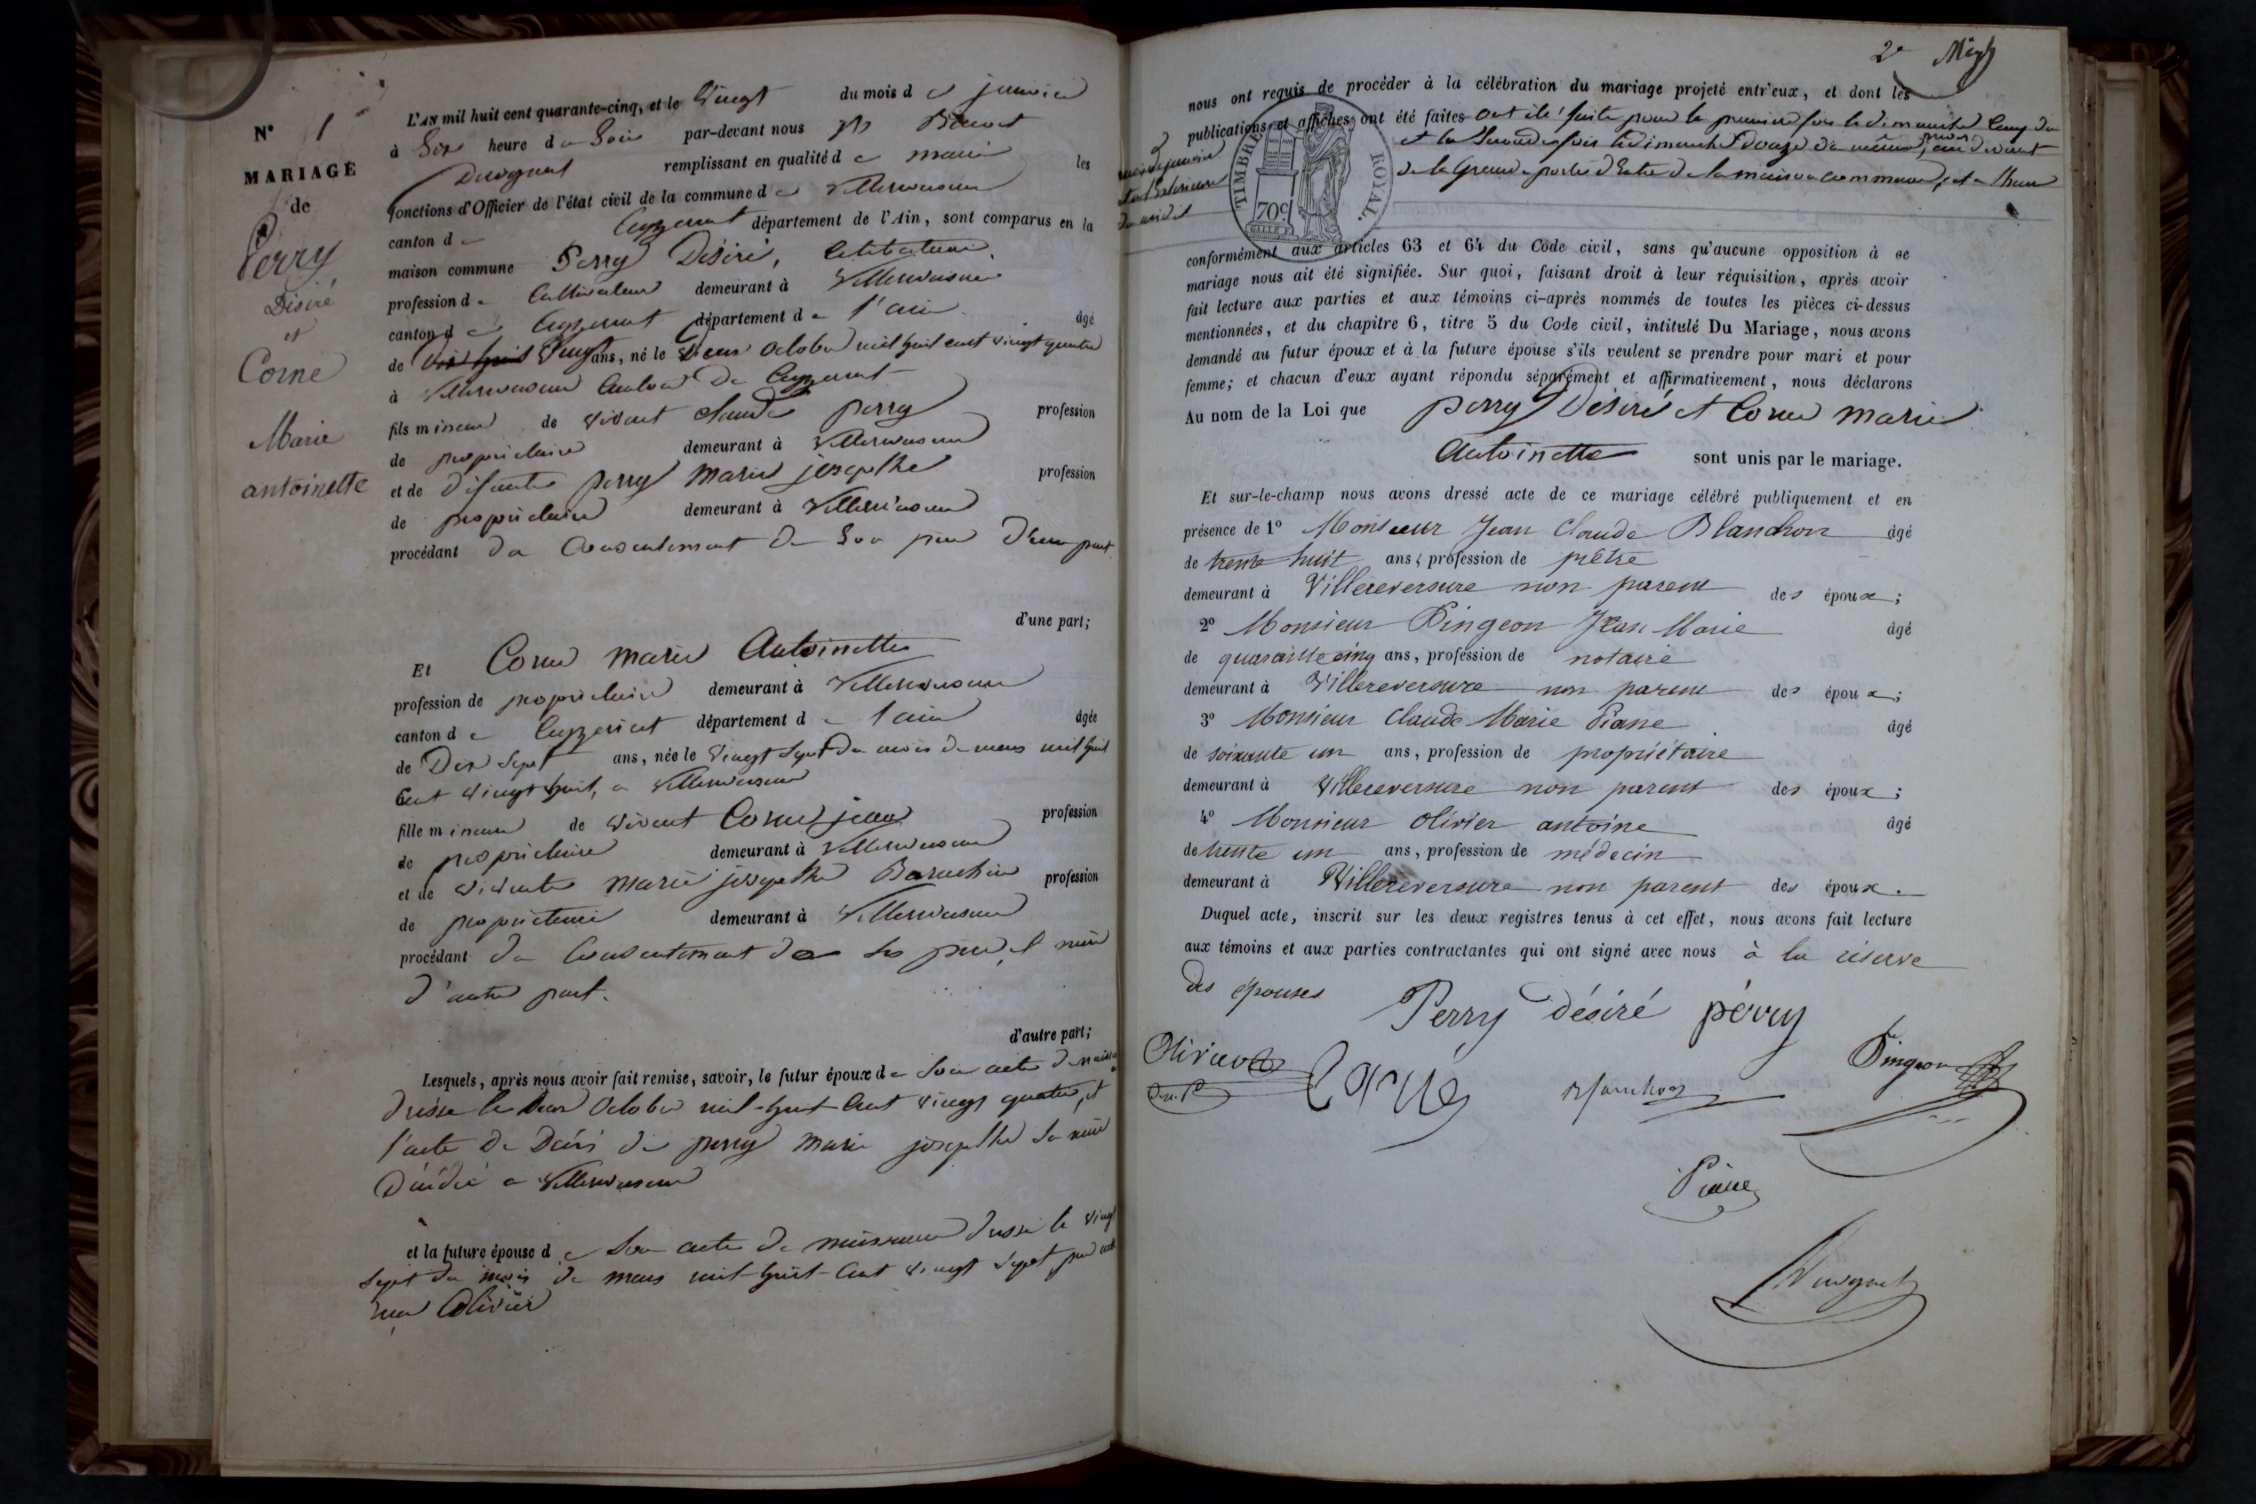 N° 1
MARIAGE
de
Perry
Désiré
et
Corne
Marie
antoinette
L'AN mil huit cent quarante-cinq, et le vingt du mois de janvier
à Six heure du Soir par-devant nous Benoit
Duvignat remplissant en qualité de maire les
fonctions d'Officier de l'état civil de la commune de Villereversure
canton de Ceyzeriat département de l'Ain, sont comparus en la
maison commune Perry Désiré, Celibataire,
profession de Cultivateur demeurant à Villereversure
canton de Ceyzeriat département de l'ain âgé
de vingt ans, né le deux octobre mil huit cent vingt quatre
à Villereversure Canton De Ceyzeriat
fils mineur de vivant claude perry profession
de propriétaire demeurant à Villereversure
et de défunte perry Marie josephte profession
de propriétaire demeurant à Villereversure
procédant du Consentement de Son père D'une part
d'une part;
Et Corne marie Antoinette
profession de propriétaire demeurant à Villereversure
canton de Ceyzeriat département de l'ain âgée
de Dix Sept ans, née le vingt Sept du mois de mars mil huit
Cent vingt huit, a Villereversure
fille mineure de vivant Corne jean profession
de propriétaire demeurant à Villereversure
et de vivante marie josephte profession
de propriétaire demeurant à Villereversure
procédant du Consentement de ses père et mère
d'autre part.
d'autre part;
Lesquels, après nous avoir fait remise, savoir, le futur époux de Son acte de
dressé le deux octobre mil-huit cent vingt quatre, et
l'acte De Décès de perry Marie josephte Sa mère
Décédée a Villereversure
et la future épouse de Son acte de naissance dressé le vingt
Sept du mois de mars mil-huit-Cent vingt Sept par
Olivier
2e
nous ont requis de procéder à la célébration du mariage projeté entr'eux, et dont les
publications et affiches ont été faites ont été faite pour la premiere fois le dimanche Cinq du
mois de janvier et la Seconde fois le dimanche douze du même mois, au devant
de la Grande porte d'Entré de la maison Commune, et a l'heure
de midi
TIMBRE ROYAL.
70c
conformément aux articles 63 et 64 du Code civil, sans qu'aucune opposition à ce
mariage nous ait été signifiée. Sur quoi, faisant droit à leur réquisition, après avoir
fait lecture aux parties et aux témoins ci-après nommés de toutes les pièces ci-dessus
mentionnées, et du chapitre 6, titre 5 du Code civil, intitulé Du Mariage, nous avons
demandé au futur époux et à la future épouse s'ils veulent se prendre pour mari et pour
femme; et chacun d'eux ayant répondu séparément et affirmativement, nous déclarons
Au nom de la Loi que perry Désiré et Corne marie
Antoinette sont unis par le mariage.
Et sur-le-champ nous avons dressé acte de ce mariage célébré publiquement et en
présence de 1° Monsieur Jean Claude Blanchon âgé
de trente huit ans, profession de prêtre
demeurant à Villereversure non parent des époux;
2° Monsieur Pingeon Jean Marie âgé
de quarante cinq ans, profession de notaire
demeurant à Villereversure non parent des époux;
3° Monsieur Claude Marie Piane âgé
de soixante un ans, profession de propriétaire
demeurant à Villereversure non parent des époux;
4° Monsieur olivier antoine âgé
de trente un ans, profession de médecin
demeurant à Villereversure non parent des époux.
Duquel acte, inscrit sur les deux registres tenus à cet effet, nous avons fait lecture
aux témoins et aux parties contractantes qui ont signé avec nous à la réserve
des épouses
Perry désiré pérry
Olivier Corne Blanchon Pingeon
Piane
Duvignat